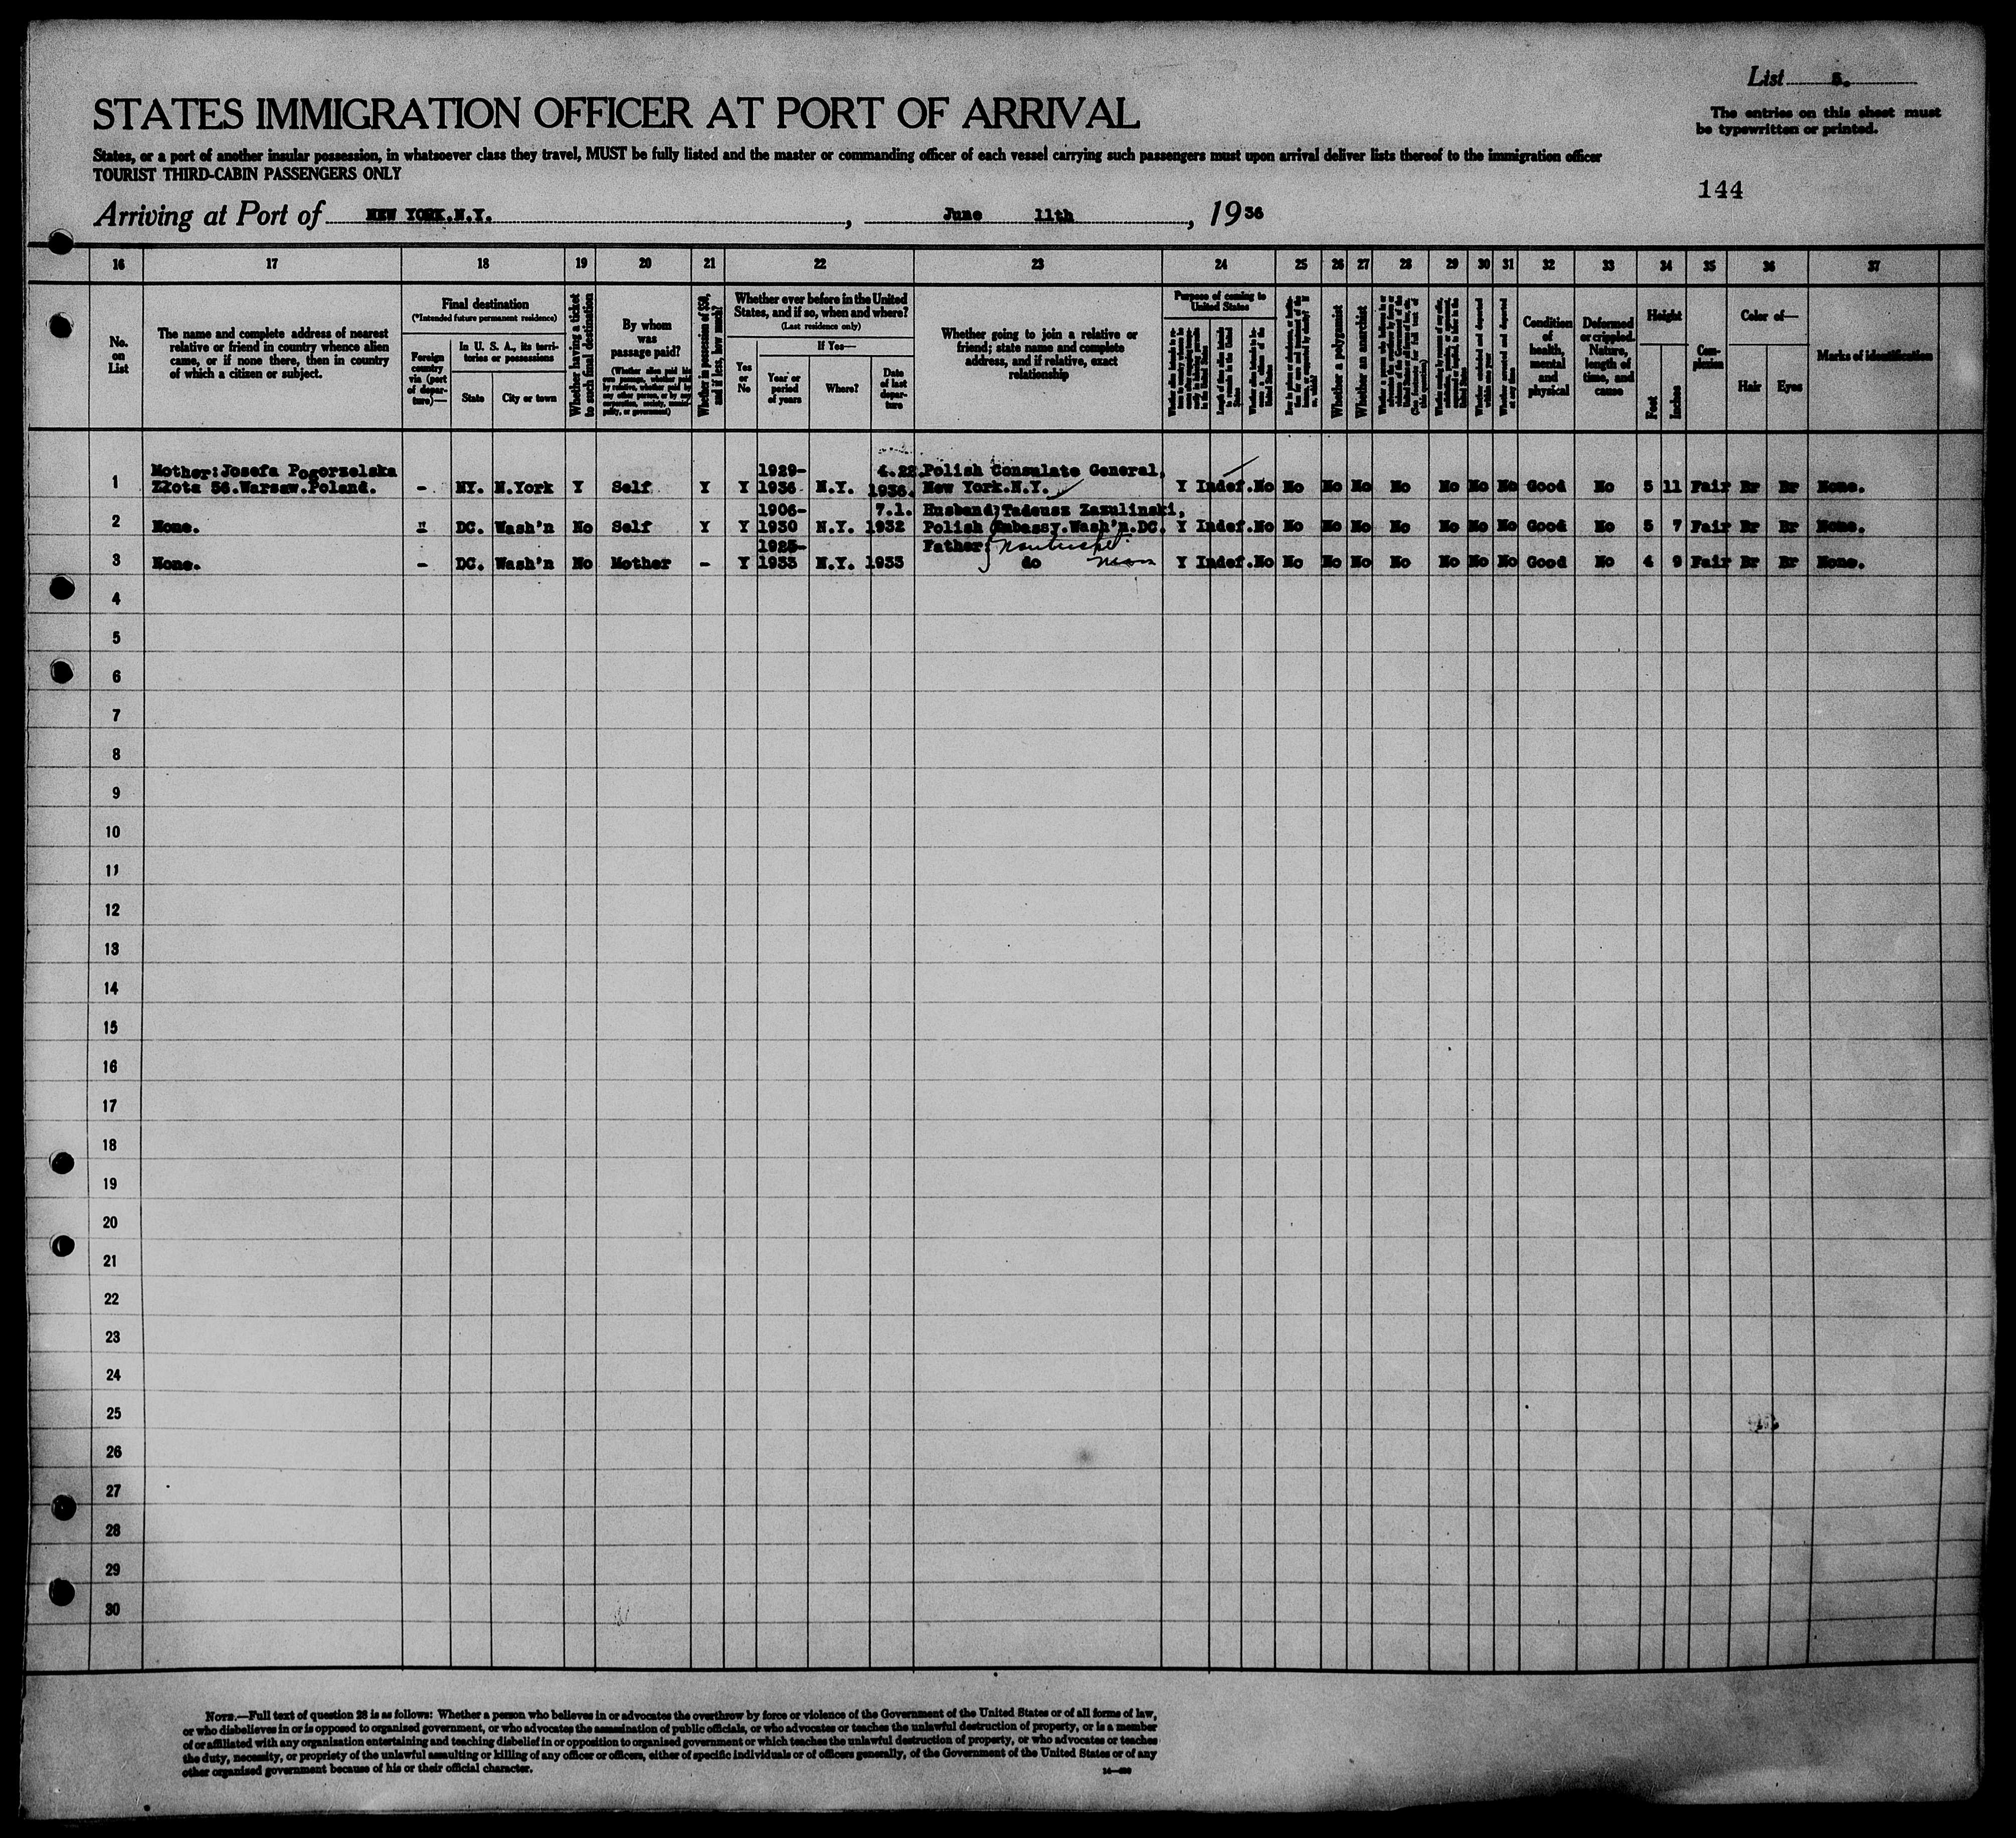 List 5.
STATES IMMIGRATION OFFICER AT PORT OF ARRIVAL
The entries on this sheet must
be typewritten or printed.
States, or a port of another insular possession, in whatsoever class they travel, MUST be fully listed and the master or commanding officer of each vessel carrying such passengers must upon arrival deliver lists thereof to the immigration officer
TOURIST THIRD-CABIN PASSENGERS ONLY
144
Arriving at Port of NEW YORK.N.Y. , June 11th , 1936
16 17 18 19 20 21 22 23 24 25 26 27 28 29 30 31 32 33 34 35 36 37
No.
on
List
The name and complete address of nearest
relative or friend in country whence alien
came, or if none there, then in country
of which a citizen or subject.
Final destination
(*Intended future permanent residence)
Foreign
country
via (port
of depar-
ture)—
In U. S. A., its terri-
tories or possessions
State
City or town
Whether having a ticket
to such final destination
By whom
was
passage paid?
(Whether alien paid his
own passage, whether paid
by relative, whether paid by
any other person, or by any
corporation, society, munici-
pality, or government)
Whether in possession of $50,
and if less, how much?
Whether ever before in the United
States, and if so, when and where?
(Last residence only)
Yes
or
No
If Yes—
Year or
period
of years
Where?
Date
of last
depar-
ture
Whether going to join a relative or
friend; state name and complete
address, and if relative, exact
relationship
Purpose of coming to
United States
Whether a polygamist
Whether an anarchist
Condition
of
health,
mental
and
physical
Deformed
or crippled.
Nature,
length of
time, and
cause
Height
Feet
Inches
Com-
plexion
Color of—
Hair
Eyes
Marks of identification
Mother:Josefa Pogorzelska 1929- 4.22 Polish Consulate General,
1 Złota 56.Warsaw.Poland. - NY. N.York Y Self Y Y 1936 N.Y. 1936. New York.N.Y. Y Indef.No No No No No No No No Good No 5 11 Fair Br Br None.
1906- 7.1. Husband;Tadeusz Zazulinski,
2 None. " DC. Wash'n No Self Y Y 1930 N.Y. 1932 Polish Embassy.Wash'n.DC. Y Indef.No No No No No No No No Good No 5 7 Fair Br Br None.
1925- Father: Nantucket
3 None. - DC. Wash'n No Mother - Y 1933 N.Y. 1933 do Mass Y Indef.No No No No No No No No Good No 4 9 Fair Br Br None.
4
5
6
7
8
9
10
11
12
13
14
15
16
17
18
19
20
21
22
23
24
25
26
27
28
29
30
NOTE.—Full text of question 28 is as follows: Whether a person who believes in or advocates the overthrow by force or violence of the Government of the United States or of all forms of law,
or who disbelieves in or is opposed to organized government, or who advocates the assassination of public officials, or who advocates or teaches the unlawful destruction of property, or is a member
of or affiliated with any organization entertaining and teaching disbelief in or opposition to organized government or which teaches the unlawful destruction of property, or who advocates or teaches
the duty, necessity, or propriety of the unlawful assaulting or killing of any officer or officers, either of specific individuals or of officers generally, of the Government of the United States or of any
other organized government because of his or their official character.